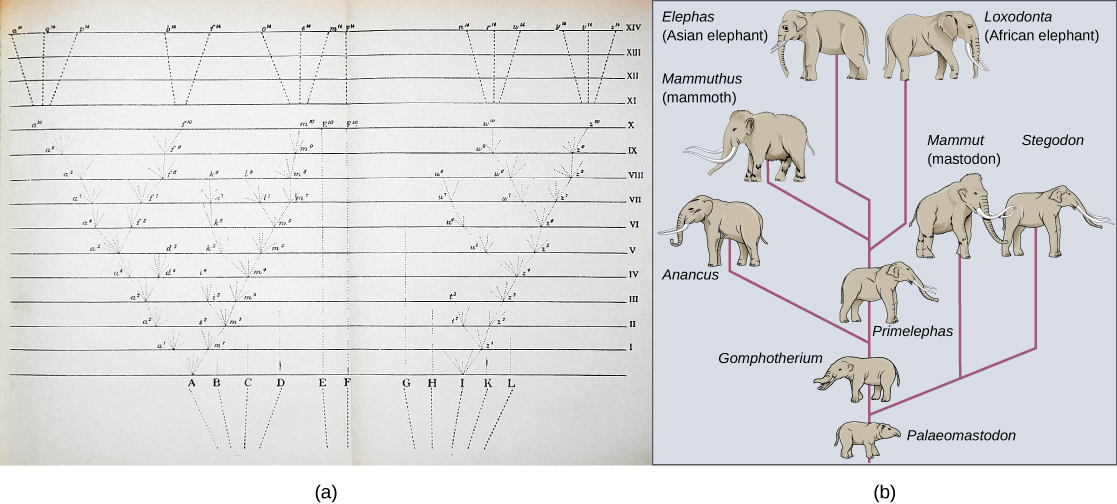 a14 q14 p14 b14 f14 o14 e14 m14 F14 n14 r14 w14 y14 v14 z14 XIV
XIII
XII
XI
a10 f10 m10 E10 F10 w10 z10 X
a9 f9 m9 w9 z9 IX
a8 f8 k8 l8 m8 u8 w8 z8 VIII
a7 f7 k7 l7 m7 u7 w7 z7 VII
a6 f6 k6 m6 u6 z6 VI
a5 d5 k5 m5 u5 z5 V
a4 d4 i4 m4 z4 IV
a3 i3 m3 t3 z3 III
a2 s2 m2 t2 z2 II
a1 m1 z1 I
A B C D E F G H I K L
(a)
Elephas
(Asian elephant)
Loxodonta
(African elephant)
Mammuthus
(mammoth)
Mammut
(mastodon)
Stegodon
Anancus
Primelephas
Gomphotherium
Palaeomastodon
(b)